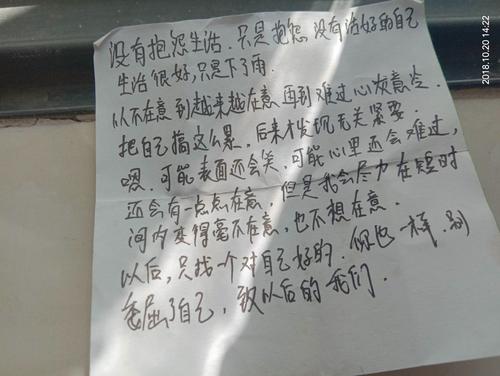 没有抱怨生活.只是抱怨没有活好的自己
生活很好,只是下了雨.
从不在意到越来越在意再到难过心灰意冷.
把自己搞这么累,后来才发现无关紧要.
嗯.可能表面还会笑,可能心里还会难过,
还会有一点点在意,但是我会尽力在短时
间内变得毫不在意,也不想在意.
以后,只找一个对自己好的.你也一样.别
委屈了自己,致以后的我们.
2018.10.20 14:22